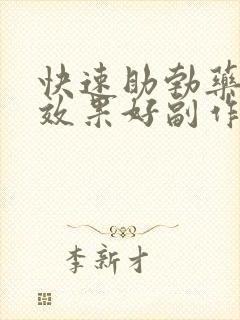 快速助勃药
效果好副作
李新才